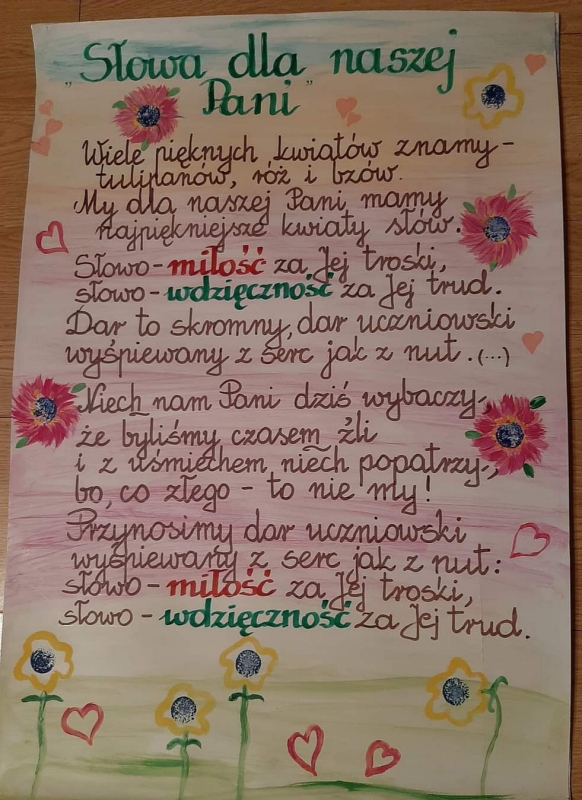 „Słowa dla naszej
Pani"
Wiele pięknych kwiatów znamy -
tulipanów, róż i bzów.
My dla naszej Pani mamy
najpiękniejsze kwiaty słów.
Słowo - miłość za Jej troski,
słowo - wdzięczność za Jej trud.
Dar to skromny, dar uczniowski
wyśpiewany z serc jak z nut. (...)
Niech nam Pani dziś wybaczy,
że byliśmy czasem źli
i z uśmiechem niech popatrzy,
bo, co złego - to nie my!
Przynosimy dar uczniowski
wyśpiewany z serc jak z nut:
słowo - miłość za Jej troski,
słowo - wdzięczność za Jej trud.